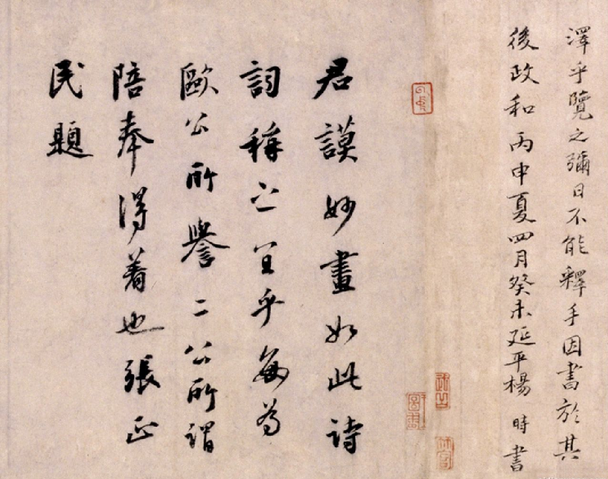 澤乎覽之彌日不能釋手因書於其
後政和丙申夏四月癸未延平楊時書
君謨妙畫如此詩
詞稱之宜乎每為
歐公所譽二公所謂
陪奉得著也張正
民題